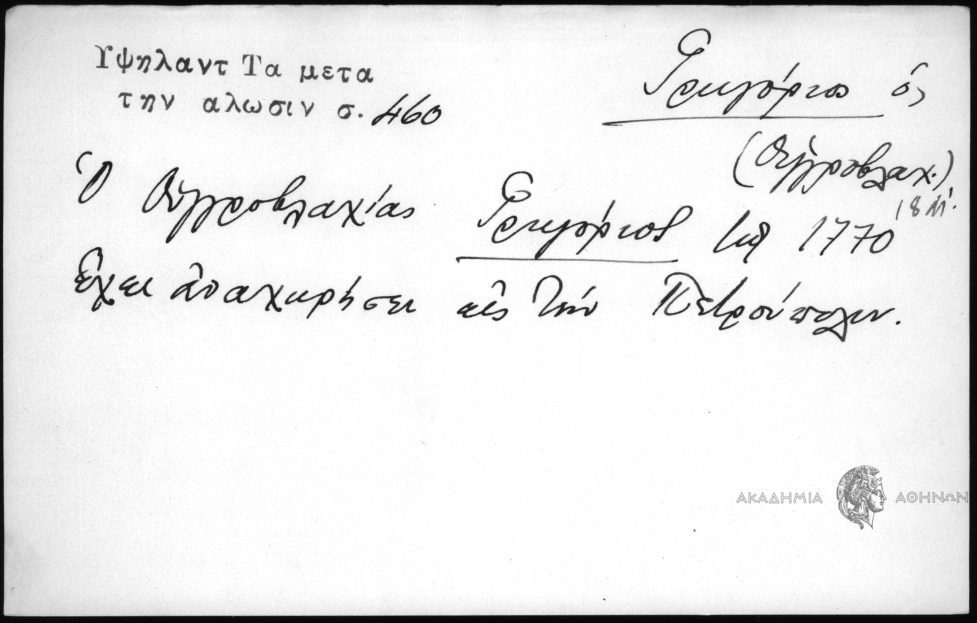 Υψηλαντ Τα μετα
την αλωσιν σ. 460
Γρηγόριος ὁ,
(Οὑγγροβλαχ.)
18 αἰ.
Ὁ Οὑγγροβλαχίας Γρηγόριος τῷ 1770
ἔχει ἀναχωρήσει εἰς τὴν Πετρούπολιν.
ΑΚΑΔΗΜΙΑ ΑΘΗΝΩΝ